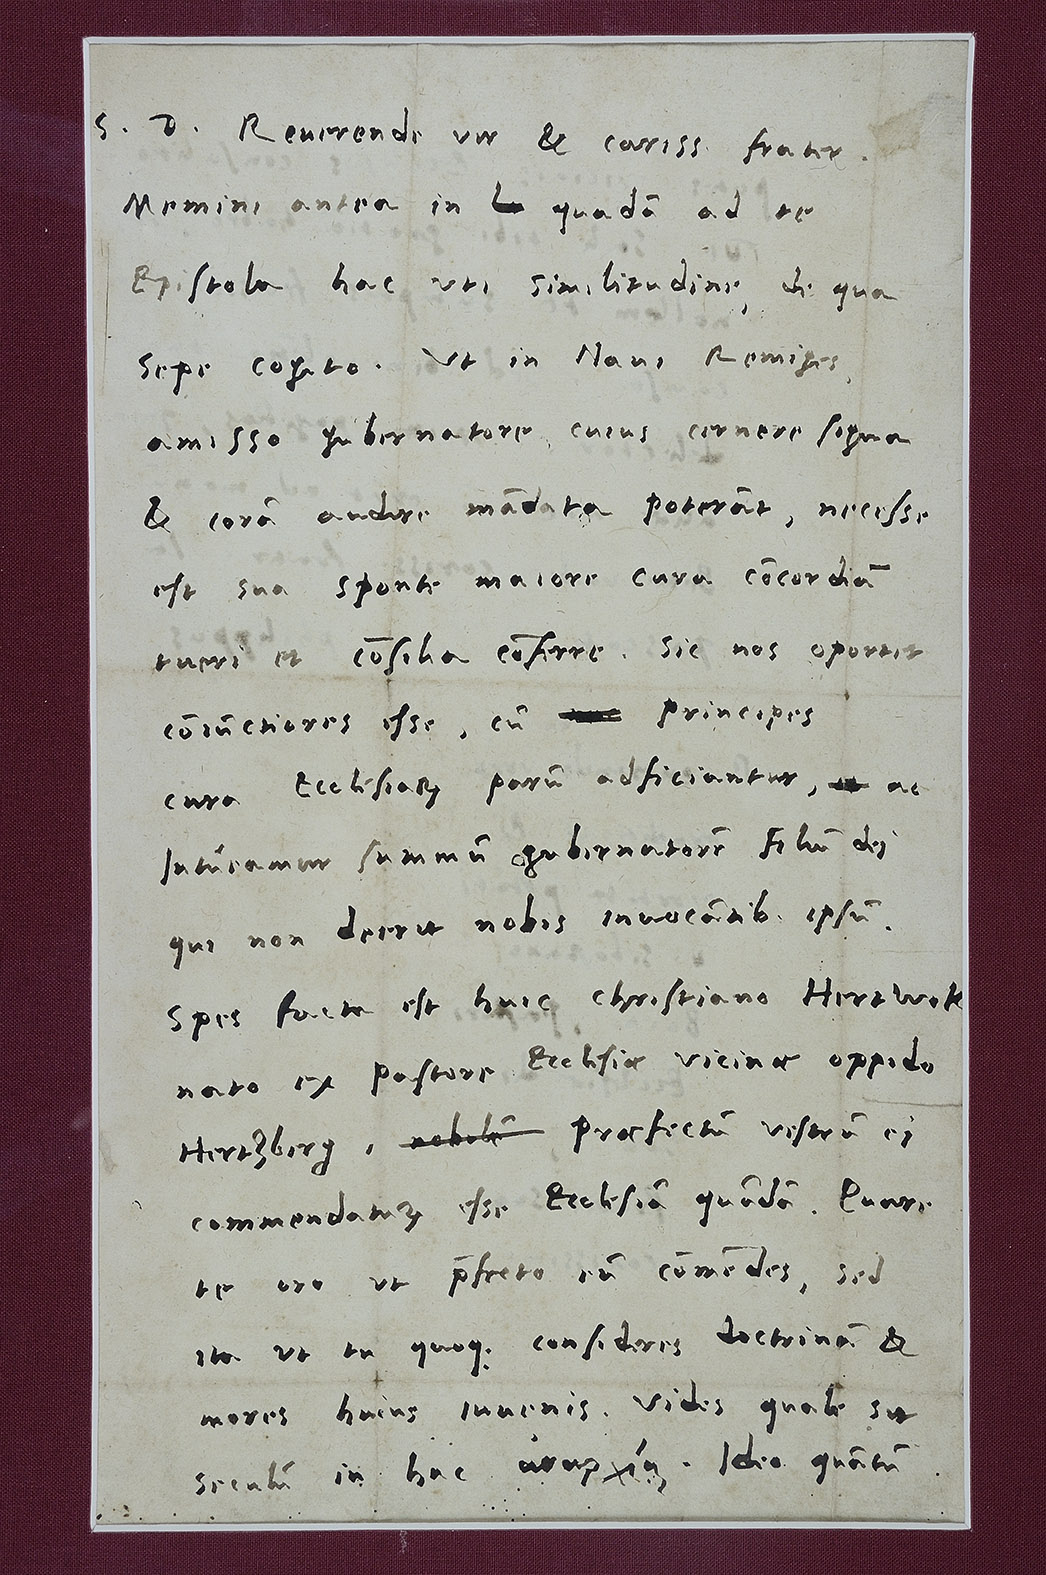 S. D. Reuerende vir & cariss. frater.
Memini antea in quadā ad te
Epistola hac vti similitudine, de qua
sepe cogito. Vt in Naui Remiges,
amisso gubernatore, cuius cernere signa
& corā audire mādata poterāt, necesse
est sua sponte maiore cura cōcordiā
tueri et cōsilia cōferre. Sic nos oportet
cōiūctiores esse, cū principes
cura Ecclesiarꝝ parū adficiantur, ac
Intueamur summū gubernatorē Filiū dei
qui non deerit nobis inuocātib. ipsū.
Spes facta est huic Christiano Hertwok
nato ex pastore Ecclesiæ vicinæ oppido
Hertzberg, præfectū vestrū ei
commendaturꝝ esse Ecclesiā quādā. Quare
te oro vt p̄fecto eū cōmēdes, sed
ita vt tu quoq; consideres doctrinā &
mores huius iuuenis. Vides quale sit
seculū in hac ἀναρχίᾳ. Ideo quātū